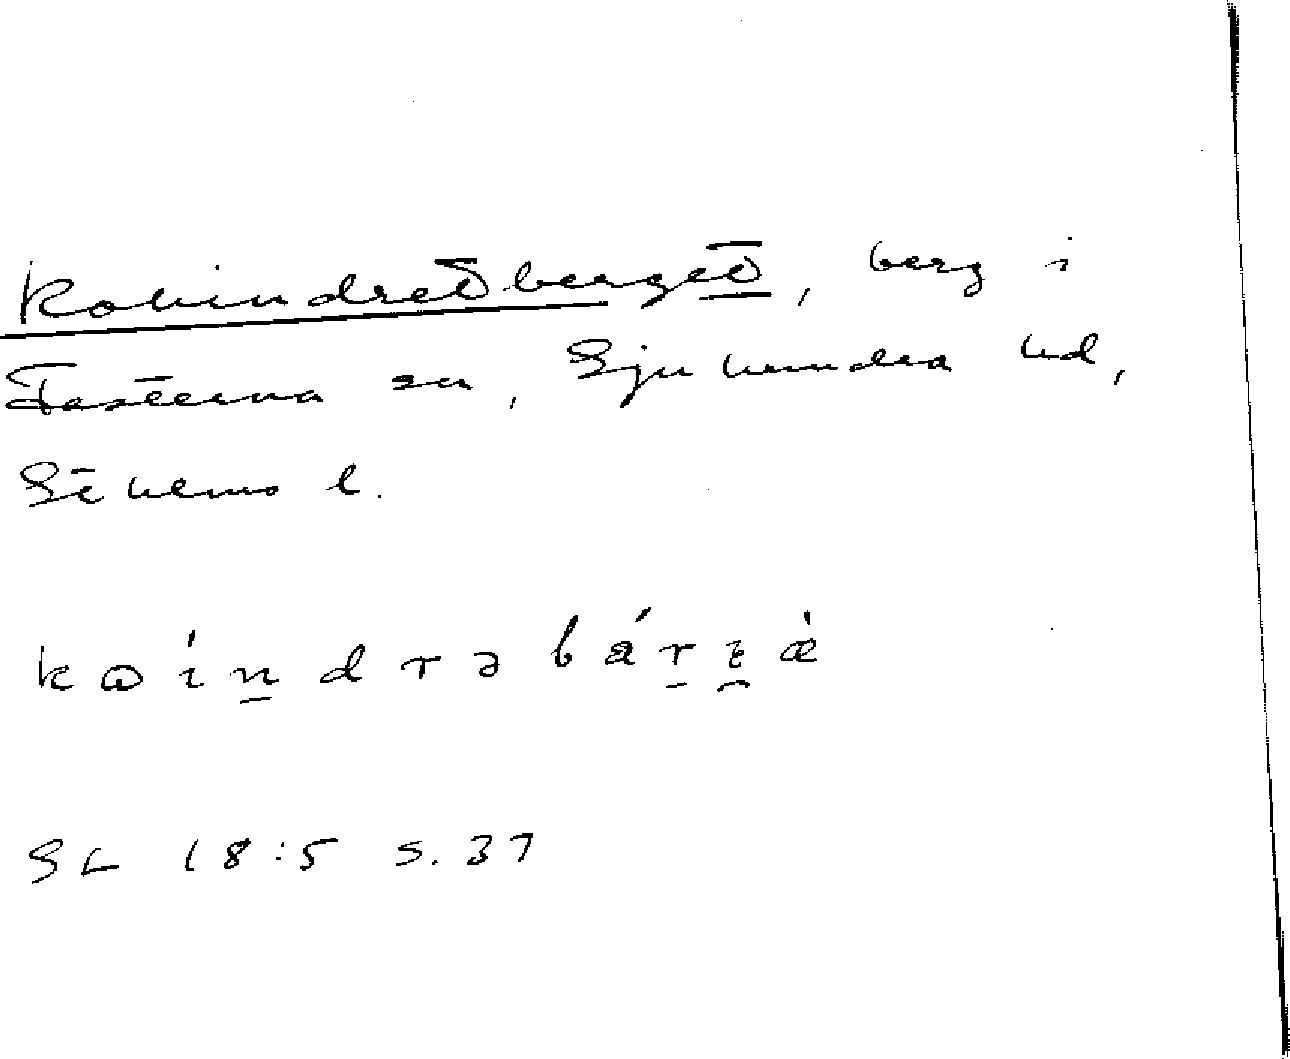 Kohindretberget, berg i
Fasterna sn, Sjuhundra hd,
Sthlms l.
kɷín̠drəbár̠ʒ̮æ̀
SL 18:5 s. 37